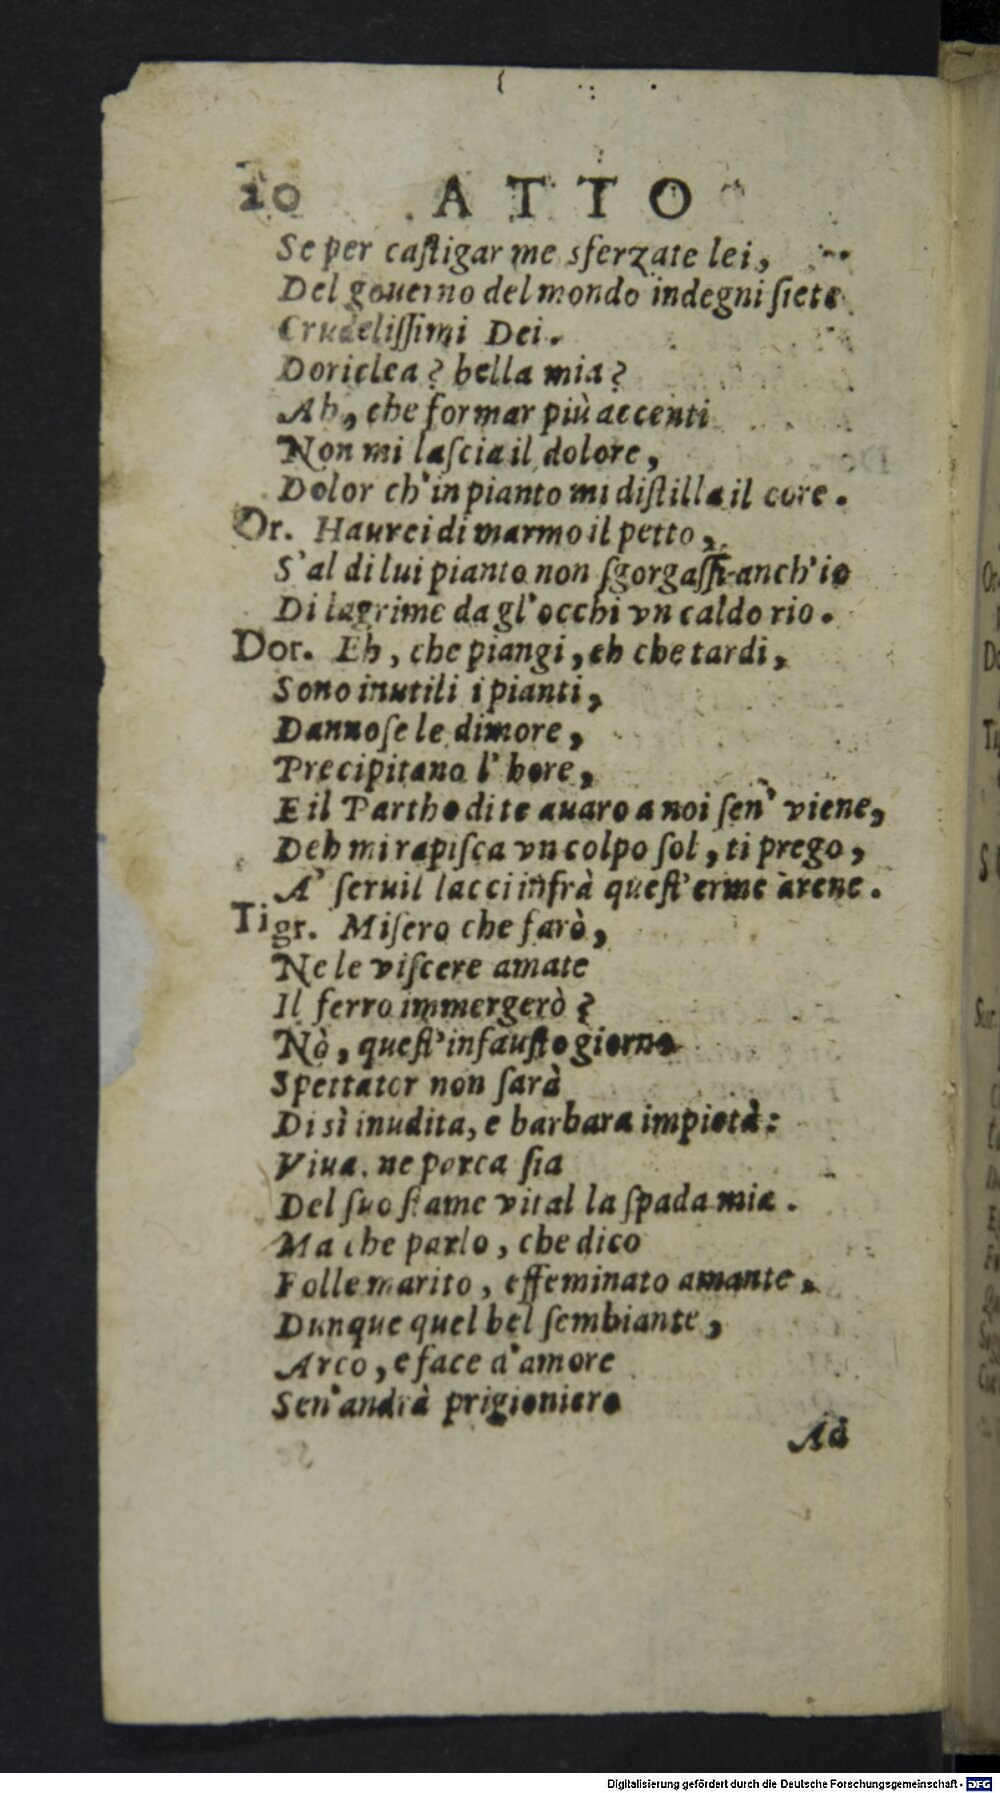 20 ATTO
Se per caſtigar me sferzate lei,
Del gouerno del mondo indegni ſiete
Crudeliſſimi Dei.
Doriclea? bella mia?
Ah, che formar più accenti
Non mi laſcia il dolore,
Dolor ch'in pianto mi diſtilla il core.
Or. Haurei di marmo il petto,
S'al di lui pianto non ſgorgaſſi anch'io
Di lagrime da gl'occhi vn caldo rio.
Dor. Eh, che piangi, eh che tardi,
Sono inutili i pianti,
Dannoſe le dimore,
Precipitano l'hore,
E il Partho di te auaro a noi ſen' viene,
Deh mi rapiſca vn colpo ſol, ti prego,
A' ſeruil lacci infrà queſt'erme arene.
Tigr. Miſero che farò,
Ne le viſcere amate
Il ferro immergerò?
Nò, queſt'infauſto giorno
Spettator non ſarà
Di sì inudita, e barbara impietà:
Viua. ne porca ſia
Del ſuo ſtame vital la ſpada mia.
Ma che parlo, che dico
Folle marito, effeminato amante,
Dunque quel bel ſembiante,
Arco, e face d'amore
Sen'andrà prigioniero
Ad
Digitalisierung gefördert durch die Deutsche Forschungsgemeinschaft - DFG